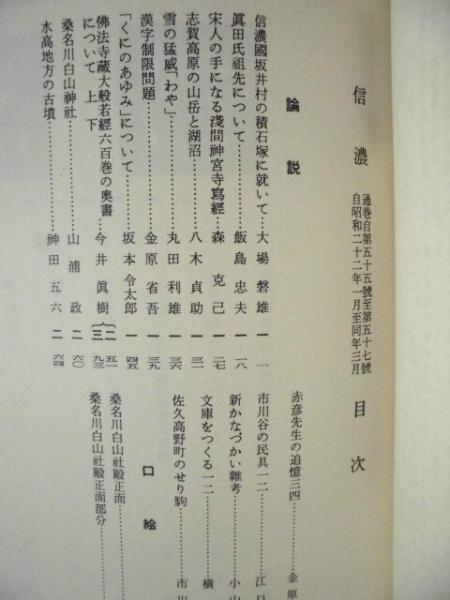 信濃 通巻自第五十五號至第五十七號 自昭和二十二年一月至同年三月 目次
論説
信濃國坂井村の積石塚に就いて……大場磐雄 一 一
眞田氏祖先について……飯島忠夫 一 一八
宋人の手になる淺間神宮寺寫經……森克己 一 二七
志賀高原の山岳と湖沼……八木貞助 一 三一
雪の猛威「わや」……丸田利雄 一 三六
漢字制限問題……金原省吾 一 三九
「くにのあゆみ」について……坂本令太郎 一 四五
佛法寺藏大般若經六百巻の奧書について 上下……今井眞樹 二 五一 三 九三
桑名川白山神社……山浦政 二 六〇
水高地方の古墳……神田五六 二 六四
赤彦先生の追憶三四……金原
市川谷の民具一二……江口
新かなづかい雜考……小山
文庫をつくる一二……横
佐久高野町のせり駒……市川
口絵
桑名川白山社殿正面……
桑名川白山社殿正面部分……